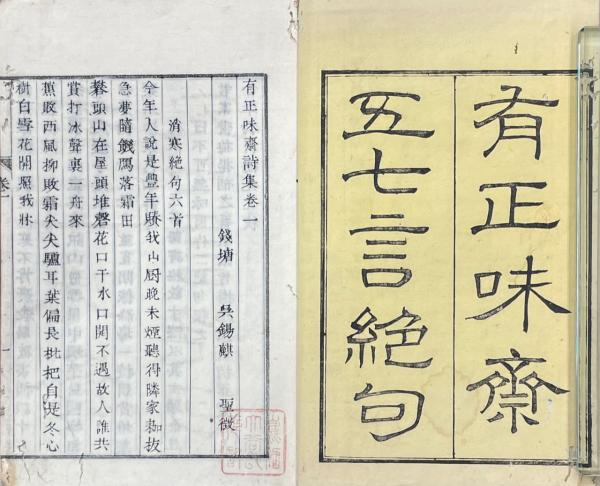 有正味齋
五七言絕句
有正味齋詩集卷一
錢塘 吳錫麒 聖徵
消寒絕句六首
今年人說是豐年賸我山厨晚未煙聽得隣家
急要隨饑鴈落霜田
頭山在屋頭堆磬花口于水口開不遇故人誰共
賞打冰聲裏一舟來
蕉敗西風柳敗霜尖尖驢耳葉偏長枇杷自是冬心
樹白雪花開照我牀
卷一
一